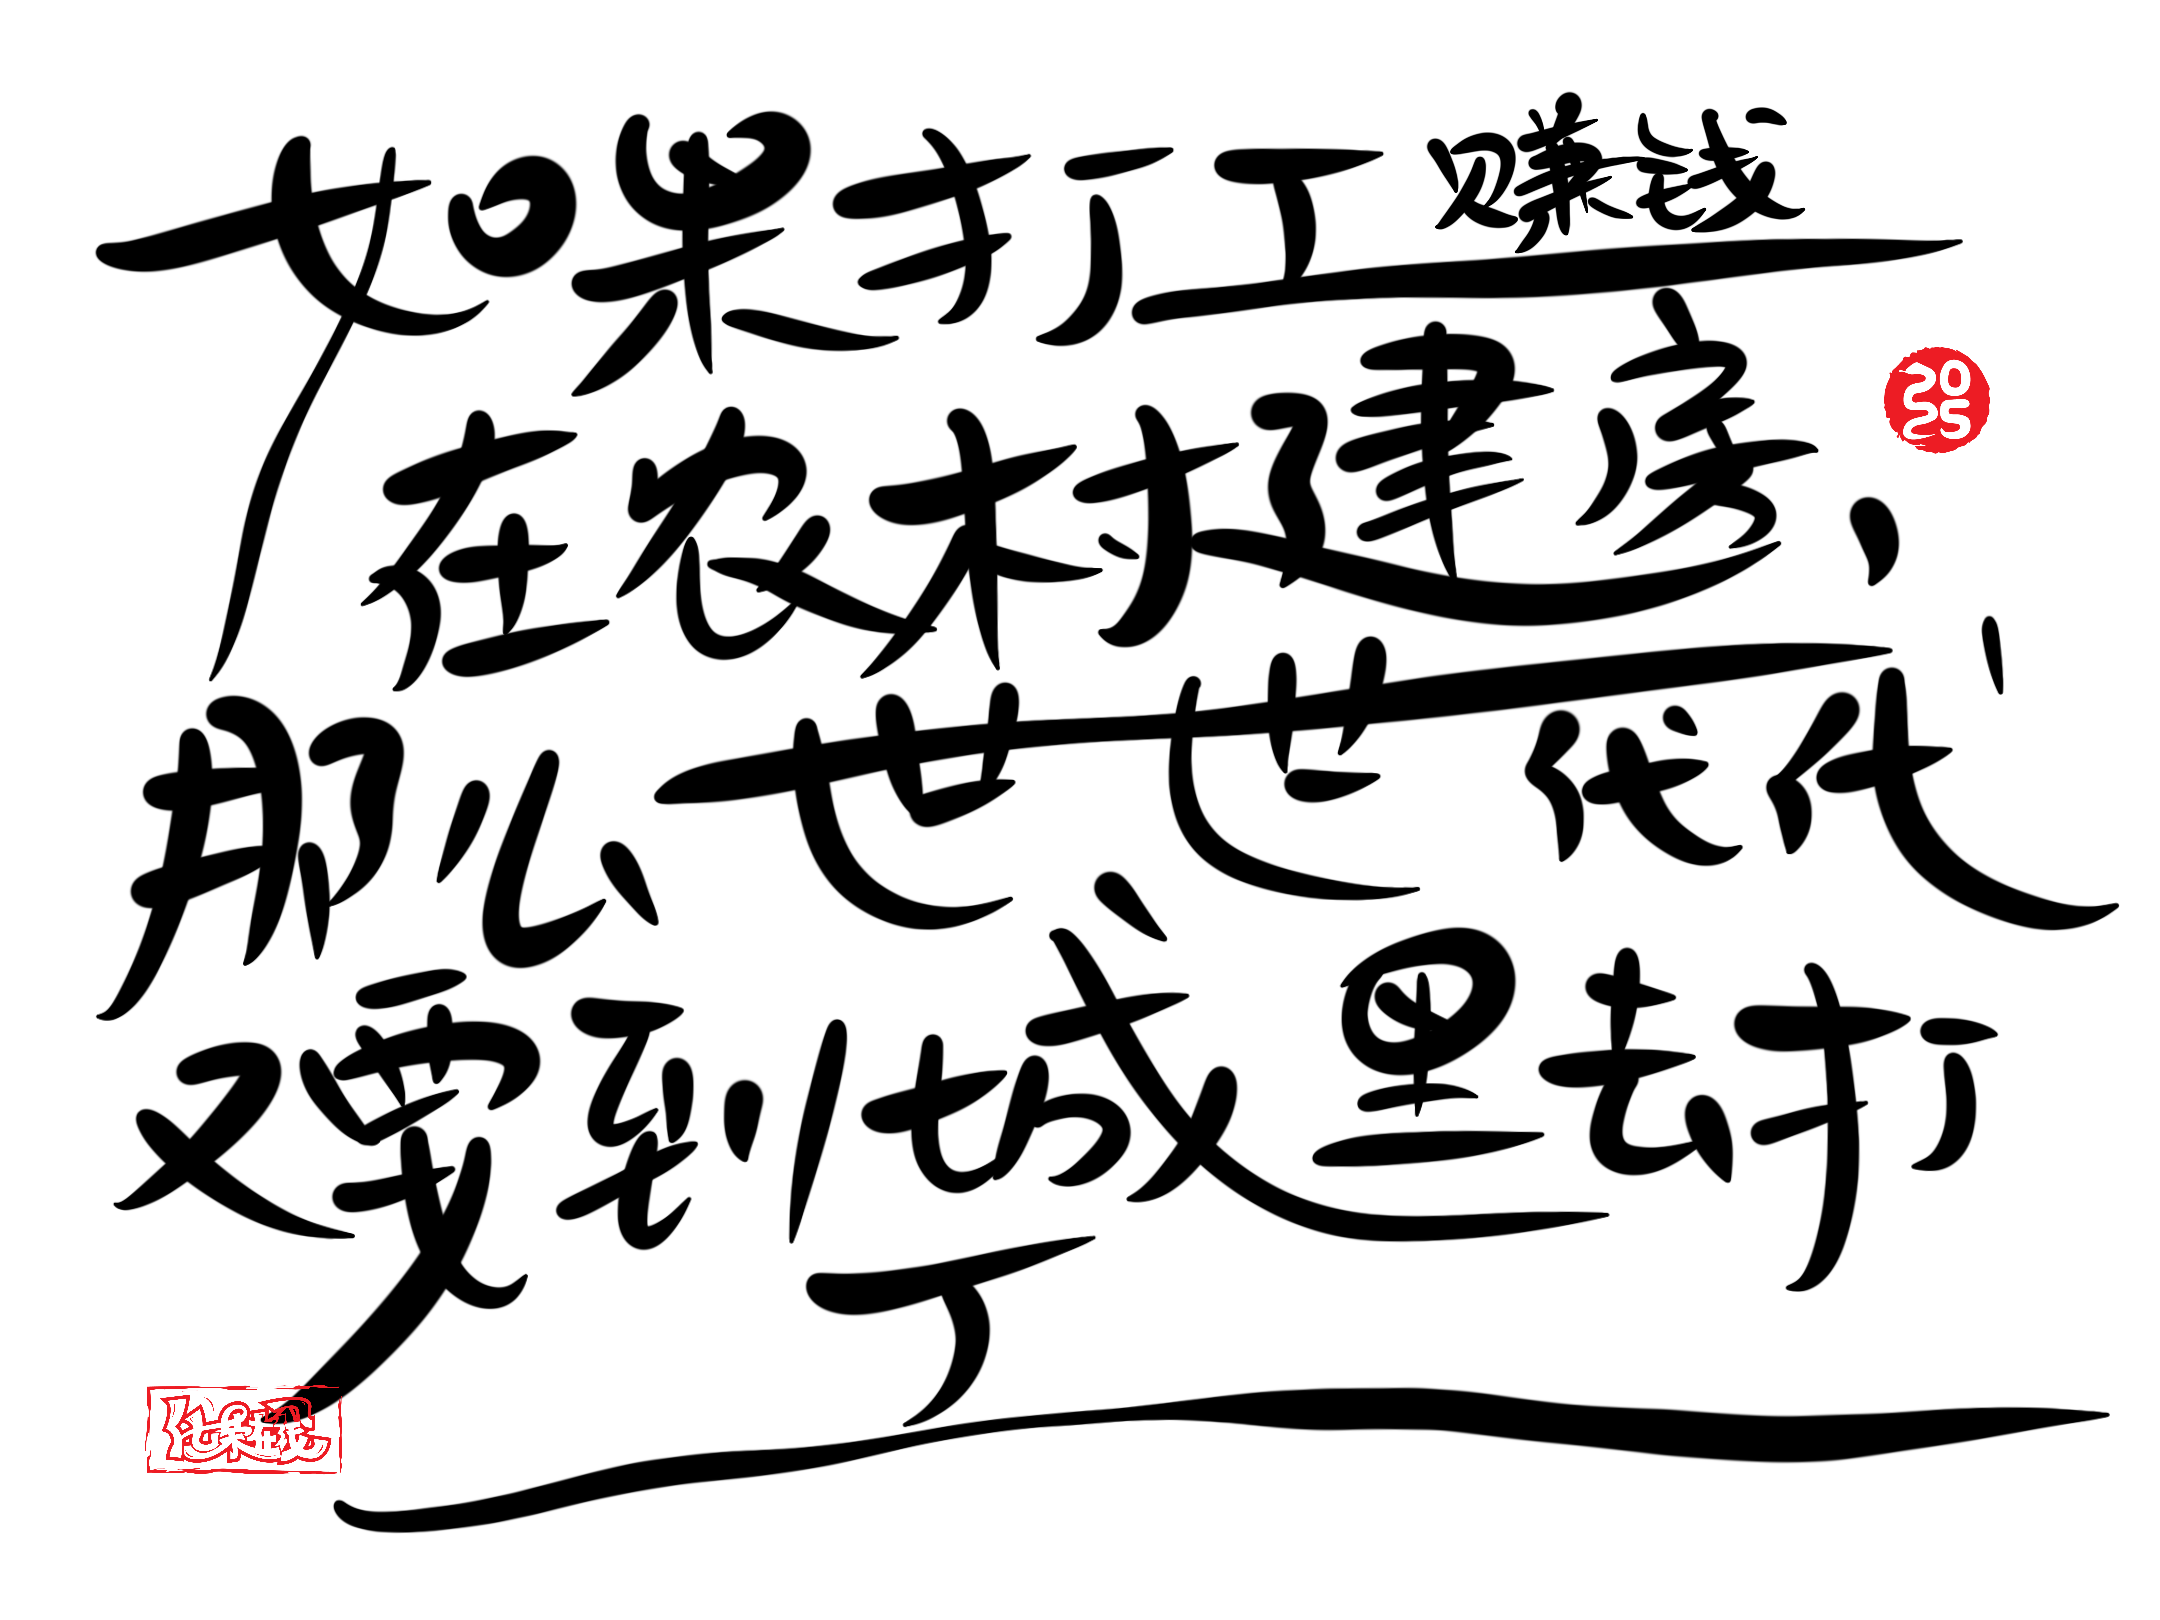 如果打工赚钱
在农村建房，
那么世世代代
又要到城里去打
工
2025